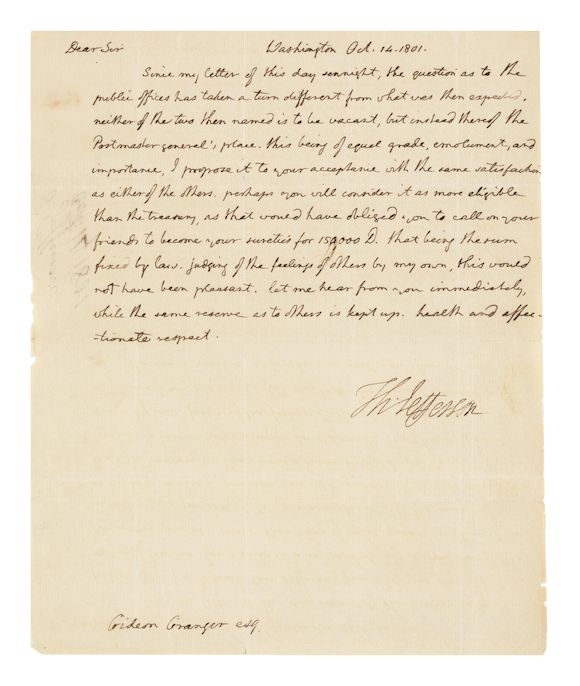 Dear Sir Washington Oct. 14. 1801.
Since my letter of this day sennight, the question as to the
public offices has taken a turn different from what was then expected.
neither of the two then named is to be vacant, but instead thereof the
Postmaster general's place. this being of equal grade, emolument, and
importance, I propose it to your acceptance with the same satisfaction
as either of the others. perhaps you will consider it as more eligible
than the treasury, as that would have obliged you to call on your
friends to become your sureties for 150,000 D. that being the sum
fixed by law. judging of the feelings of others by my own, this would
not have been pleasant. let me hear from you immediately,
while the same reserve as to others is kept up. health and affec-
-tionate respect.
Th: Jefferson
Gideon Granger esq.